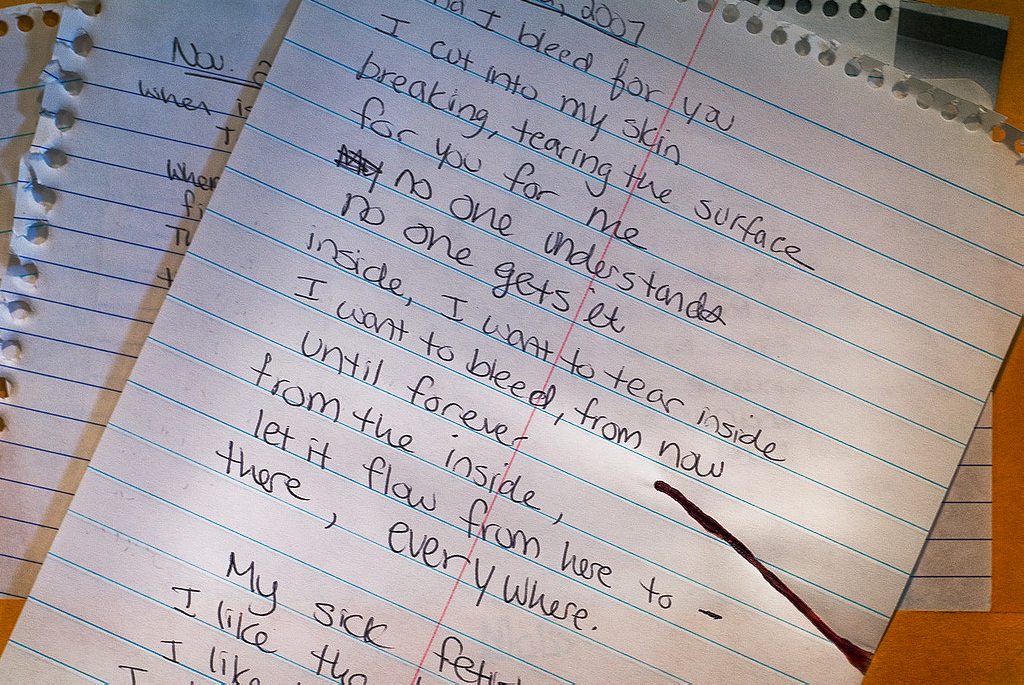 2007
I bleed for ya
I cut into my skin
breaking, tearing the surface
for you for me
no one understands
no one gets it
inside, I want to tear inside
I want to bleed, from now
until forever
from the inside,
let it flow from here to -
there, everywhere.
My sick
I like
I like
I
Nov.
when
when